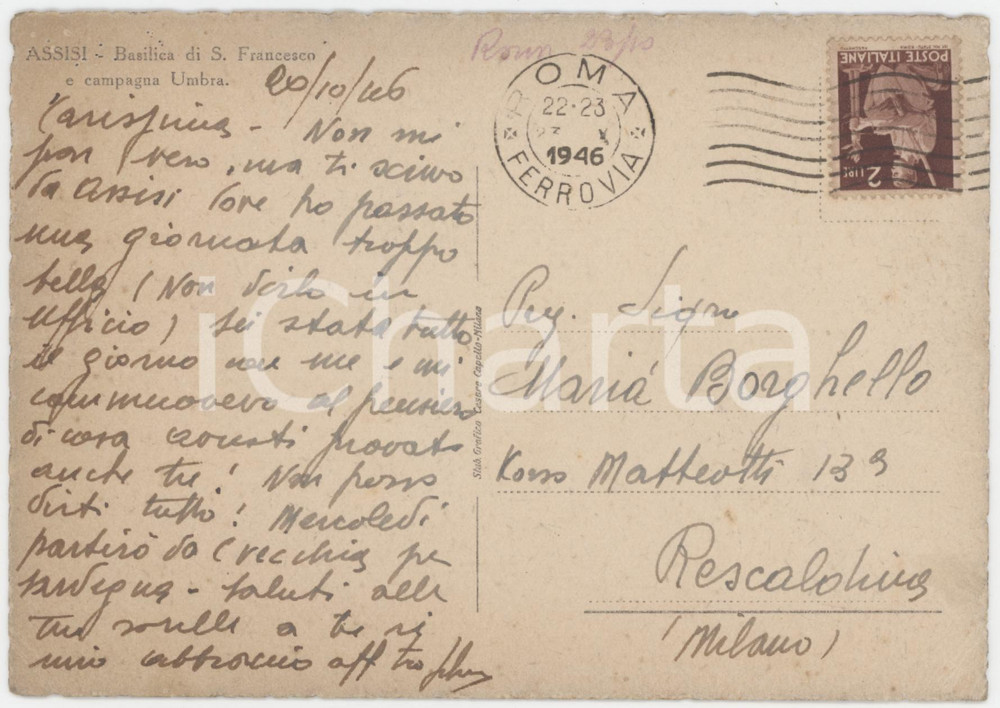 ASSISI - Basilica di S. Francesco
e campagna Umbra.
20/10/46
Carissima - Non mi
par vero, ma ti scrivo
da Assisi dove ho passato
una giornata troppo
bella (Non dirlo in
Ufficio) sei stata tutto
il giorno con me e mi
commuovevo al pensiero
di cosa avresti provato
anche te! Non posso
dirti tutto! Mercoledì
partirò da Cvecchia per
Sardegna - Saluti alle
tue sorelle a te un
mio abbraccio aff
Roma 23/10
ROMA
22-23
1946
FERROVIA
POSTE ITALIANE
2 LIRE
Stab. Grafico Cesare Capello-Milano
Preg. Sigra
Maria Borghello
Corso Matteotti 139
Rescaldina
(Milano)
iCharta